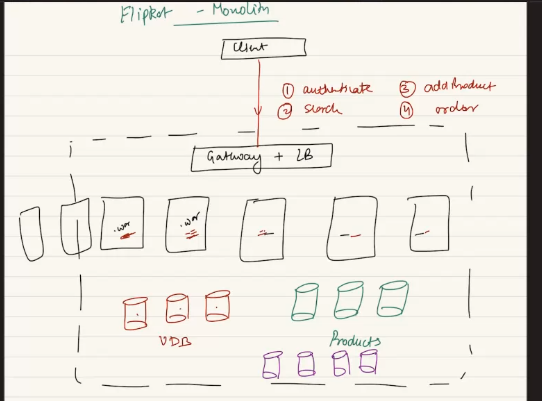 Flipkot - Monolith
Client
① authenticate ③ addProduct
② search ④ order
Gateway + LB
.war .war
UDB Products